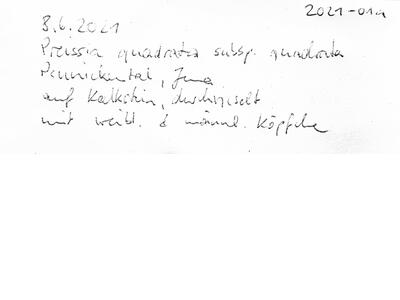 2021-01a
8.6.2021
Preissia quadrata subsp. quadrata
Pennickental, Jena
auf Kalkstein, durchrieselt
mit weibl. & männl. Köpfche